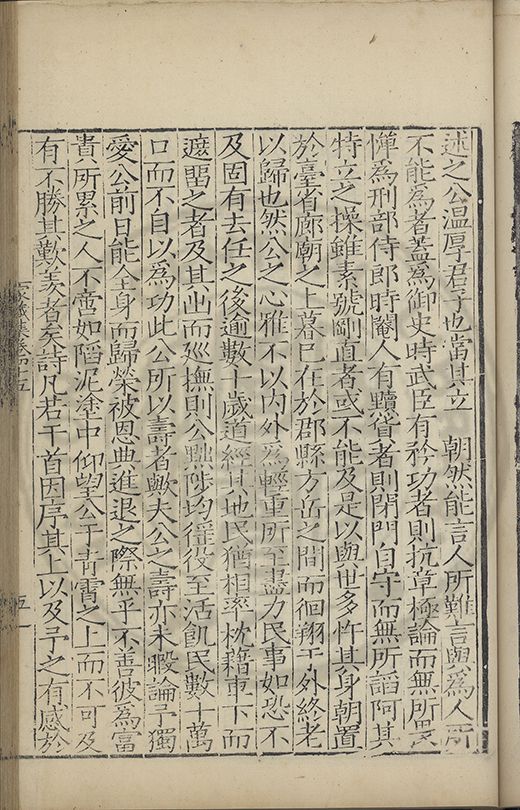 述之公溫厚君子也當其立　朝然能言人所難言與爲人所
不能爲者蓋爲御史時武臣有矜功者則抗章極論而無所畏
憚爲刑部侍郎時閹人有贖貨者則閉門自守而無所謟阿其
特立之操雖素號剛直者或不能及是以與世多忤其身朝置
於臺省廊廟之上暮巳在於郡縣方岳之間而徊翔于外終老
以歸也然公之心雅不以内外爲輕重所至盡力民事如恐不
及固有去任之後逾數十歲道經其地民猶相率枕藉車下而
遮畱之者及其出而廵撫則公黜陟均徭役至活飢民數十萬
口而不自以爲功此公所以壽者歟夫公之壽亦未暇論予獨
愛公前日能全身而歸榮被恩典進退之際無乎不善彼爲富
貴所累之人不啻如蹈泥塗中仰望公于青霄之上而不可及
有不勝其歎羡者矣詩凡若干首因序其上以及予之有感於
家藏集卷四五
五